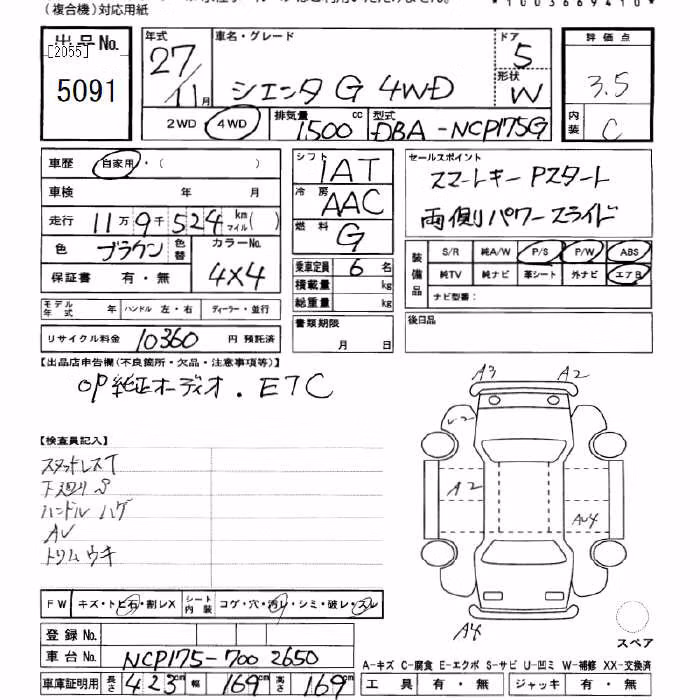 (複合機)対応用紙
*1003669410*
出品No.
[2055]
5091
年式 27/11月
車名・グレード
シエンタ G 4WD
ドア 5
形状 W
2WD 4WD
排気量 1500 cc
型式 DBA-NCP175G
評価点
3.5
内装 C
車歴 自家用・( )
車検 年 月
走行 11万9千524 km マイル( )
色 ブラウン 色替 カラーNo. 4X4
保証書 有・無
モデル年式 年 ハンドル 左・右 ディーラー・並行
リサイクル料金 10360 円 預託済
シフト IAT
冷房 AAC
燃料 G
乗車定員 6 名
積載量 kg
総重量 kg
書類期限
月 日
セールスポイント
スマートキー Pスタート
両側パワースライド
装備品
S/R 純A/W P/S P/W ABS
純TV 純ナビ 革シート 外ナビ エアB
ナビ型番:
後日品
【出品店申告欄(不良箇所・欠品・注意事項等)】
OP純正オーディオ.ETC
【検査員記入】
スタットレスT
下廻りS
ハンドル ハゲ
AU
トリムウキ
A3 A2
U2
A2
AU4
A4
スペア
FW キズ・トビ石・割レX シート内装 コゲ・穴・汚レ・シミ・破レ・スレ
登録No.
車台No. NCP175-7002650
車庫証明用 長さ 423 cm 幅 169 cm 高さ 169 cm
A-キズ C-腐食 E-エクボ S-サビ U-凹ミ W-補修 XX-交換済
工具 有・無 ジャッキ 有・無